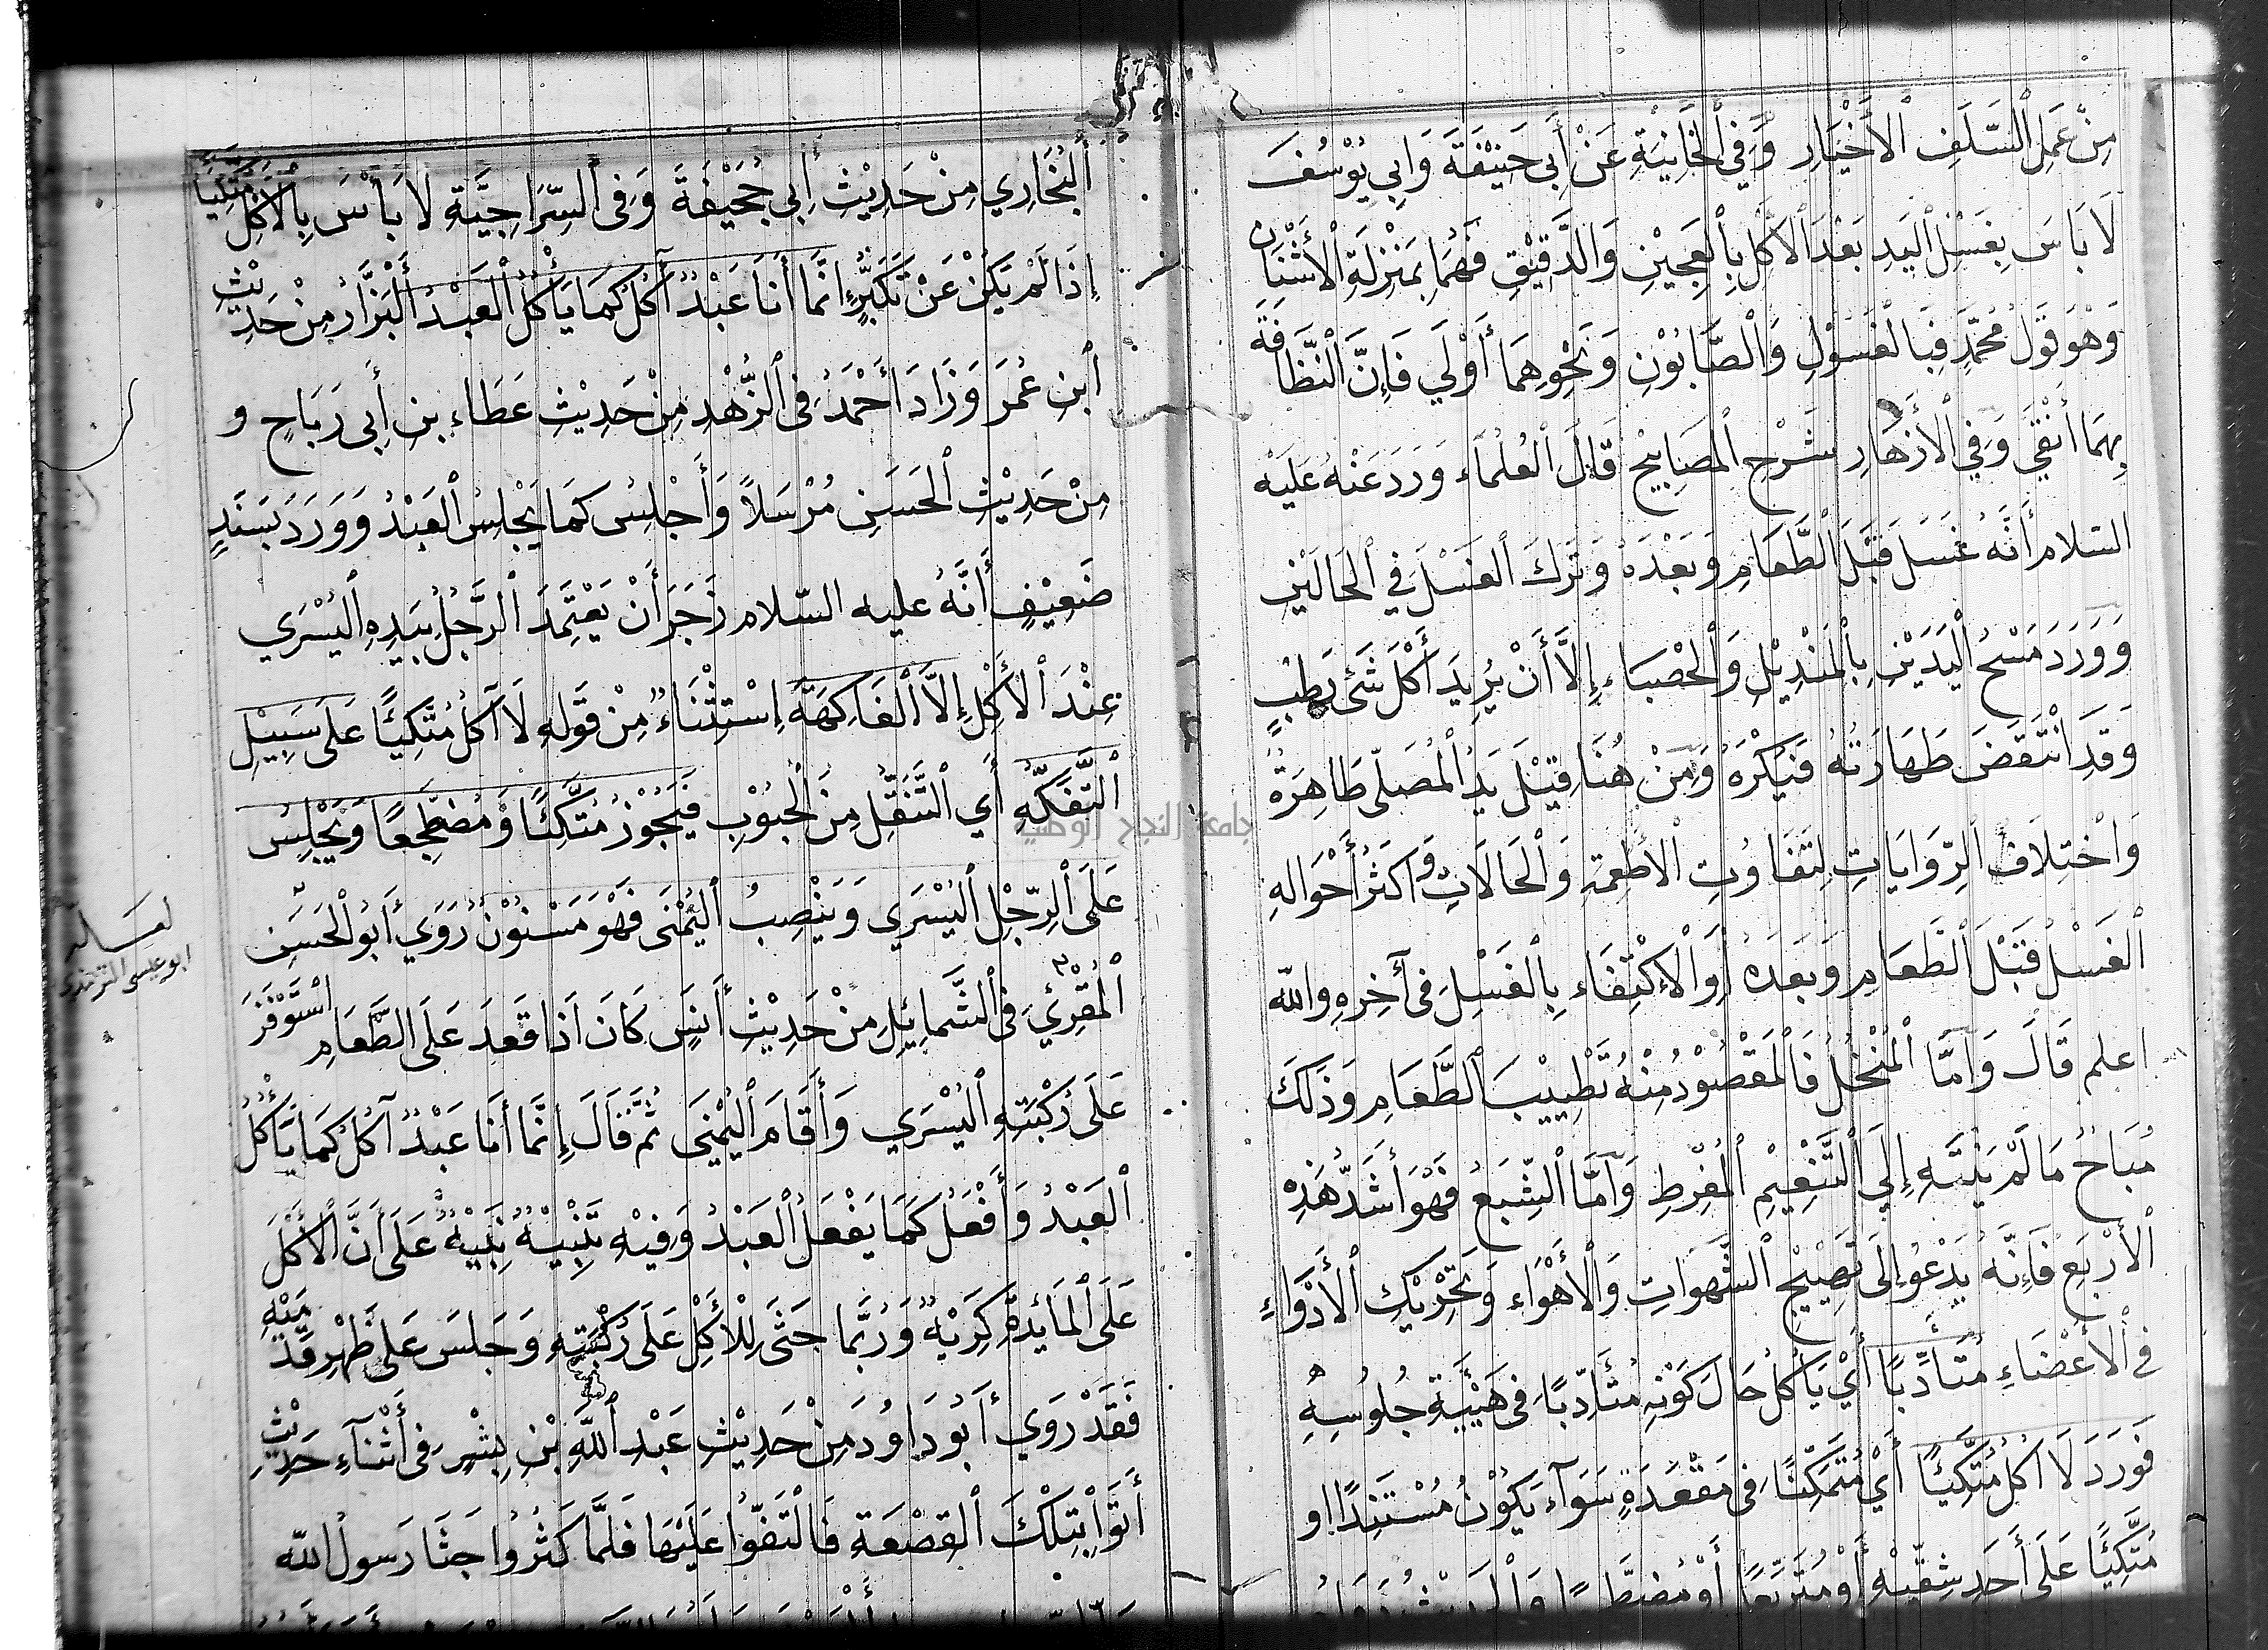 مِنْ عَمَلِ ٱلسَّلَفِ ٱلأَخْيَارِ وَفِي ٱلخَانِيَّةِ عَنْ أَبِي حَنِيْفَةَ وَابِي يُوْسُفَ
لَا بَاسَ بِغَسْلِ ٱليَدِ بَعْدَ ٱلأَكْلِ بِٱلعَجِيْنِ وَالدَّقِيْقِ فَهُمَا بِمَنْزِلَةِ ٱلأُشْنَانِ
وَهْوَ قَوْلُ مُحَمَّدٍ فَبِالغَسُوْلِ وَٱلصَّابُوْنِ وَنَحْوِهِمَا أَوْلَي فَإِنَّ ٱلنَّظَافَةَ
بِهِمَا أَنْقَي وَفِي ٱلأَزْهَارِ شَرْحِ ٱلمَصَابِيْحِ قَالَ ٱلعُلَمَاء وَرَدَ عَنْهُ عَلَيْهِ
السّلام أَنَّهُ غَسَلَ قَبْلَ ٱلطَّعَامِ وَبَعْدَهُ وَتَرَكَ ٱلغَسْلَ فِي ٱلحَالَيْنِ
وَوَرَدَ مَسْحُ ٱلْيَدَيْنِ بِٱلمَنْدِيْلِ وَٱلحَصْبَاء إِلَّا أَنْ يُرِيْدَ أَكْلَ شَئٍ رَطِبٍ
وَقَدِ انْتَقَضَ طَهَارَتُهُ فَيُكْرَهُ وَمِنْ هُنَا قِيْلَ يَدُ ٱلْمُصَلّي طَاهِرَةٌ
وَاخْتِلَافُ ٱلرِّوَايَاتِ لِتَفَاوُتِ ٱلأَطْعِمَةِ وَٱلحَالَاتِ وَاكثَرُ أَحْوَالِهِ
ٱلغَسْلُ قَبْلَ ٱلطَّعَامِ وَبَعْدَهُ أَوِ ٱلاكْتِفَاء بِالغَسْلِ فِى آخِرِهِ وَاللّه
اعلم قَالَ وَاَمَّا ٱلْمُنْخُلُ فَٱلْمَقْصُوْدُ مِنْهُ تَطْيِيْبُ ٱلطَّعَامِ وَذَلِكَ
مُبَاحٌ مَا لَمْ يَنْتَهِ إِلَي ٱلتَّنْعِيْمِ ٱلْمُفْرِطِ وَاَمَّا ٱلشِّبَعُ فَهْوَ أَشَدُّ هَذِهِ
ٱلأَرْبَعِ فَإِنَّهُ يَدْعُوْ إِلَى تَصِيْحِ ٱلشَّهَوَاتِ وَٱلأَهْوَاء وَتَحْرِيْكِ ٱلأَدْوَاءِ
فِى ٱلأَعْضَاءِ مُتَأَدِّبًا أَيْ يَاكُلُ حَالَ كَوْنِهِ مُتَأَدِّبًا فِى هَيْئَةِ جُلُوسِهِ
فَوَرَدَ لَا اٰكُلُ مُتَّكِئًا أَيْ مُتَمَكِّنًا فِى مَقْعَدَةٍ سَوَآء يَكُوْنُ مُسْتَنِدًا او
مُتَّكِئًا عَلَى أَحَدِ شِقَّيْهِ أَوْ مُتَرَبِّعًا أَوْ مُضْطَجِعًا
ٱلبُخَارِي مِنْ حَدِيْثِ أَبِي جُحَيْفَةَ وَفِى ٱلسِّرَاجِيَّةِ لَا بَأْسَ بِٱلأَكْلِ مُتَّكِيًا
إِذَا لَمْ يَكُنْ عَنْ تَكَبُّرٍ إِنَّمَا أَنَا عَبْدٌ آكُلُ كَمَا يَأْكُلُ ٱلْعَبْدُ ٱلْبَزَّارُ مِنْ حَدِيْثِ
ٱبْنِ عُمَرَ وَزَادَ أَحْمَدُ فِى ٱلزُّهْدِ مِنْ حَدِيْثِ عَطَاء بْنِ أَبِى رَبَاحٍ و
مِنْ حَدِيْثِ ٱلحَسَنِ مُرْسَلاً وَأَجْلِسُ كَمَا يَجْلِسُ ٱلعَبْدُ وَوَرَدَ بِسَنَدٍ
ضَعِيْفٍ أَنَّهُ عليه السّلام زَجَرَ أَنْ يَعْتَمِدَ ٱلرَّجُلُ بِيَدِهِ ٱليُسْرَي
عِنْدَ ٱلأَكْلِ إِلَّا ٱلفَاكِهَةَ إِسْتِثْنَاءٌ مِنْ قَوْلِهِ لَا آكُلُ مُتَّكِئًا عَلَى سَبِيْلِ
ٱلتَّفَكُّهِ أَي ٱلتَّنَقُّلِ مِنَ ٱلْحُبُوْبِ فَيَجُوْزُ مُتَّكِئًا وَمُضْطَجِعًا وَيَجْلِسُ
عَلَى ٱلرِّجْلِ ٱليُسْرَي وَيَنْصِبُ ٱليُمْنَى فَهْوَ مَسْنُوْنٌ رَوَي أَبُو ٱلحَسَنِ
ٱلْمُقْرِئُ فِى ٱلشَّمائِلِ مِنْ حَدِيْثِ أَنَسٍ كَانَ اذَا قَعَدَ عَلَى ٱلطَّعَامِ اسْتَوْفَزَ
عَلَى رُكْبَتِهِ ٱليُسْرَي وَأَقَامَ ٱليُمْنَي ثُمَّ قَالَ إِنَّمَا أَنَا عَبْدٌ آكُلُ كَمَا يَأْكُلُ
ٱلعَبْدُ وَأَفْعَلُ كَمَا يَفْعَلُ ٱلعَبْدُ وَفِيْهِ تَنْبِيْهٌ نَبِيْهٌ عَلَى أَنَّ ٱلأَكْلَ
عَلَى ٱلمَائِدَةِ كَرِيْهٌ وَرُبَّمَا جَثَى لِلْأَكْلِ عَلَى رُكْبَتَيْهِ وَجَلَسَ عَلَى ظَهْرِ قَدَمَيْهِ
فَقَدْ رَوَي أَبُو دَاوُدَ مِنْ حَدِيْثِ عَبْدِ ٱللَّهِ بْنِ بِشْرٍ فِى أَثْنَآءِ حَدِيْثِ
أَتَوْا بِتِلْكَ ٱلقَصْعَةِ فَالْتَفُّوا عَلَيْهَا فَلَمَّا كَثُرُوا جَثَا رَسولُ اللّه
لعـــله
ابو عيسى الترمذى
جامعة النجاح الوطنية